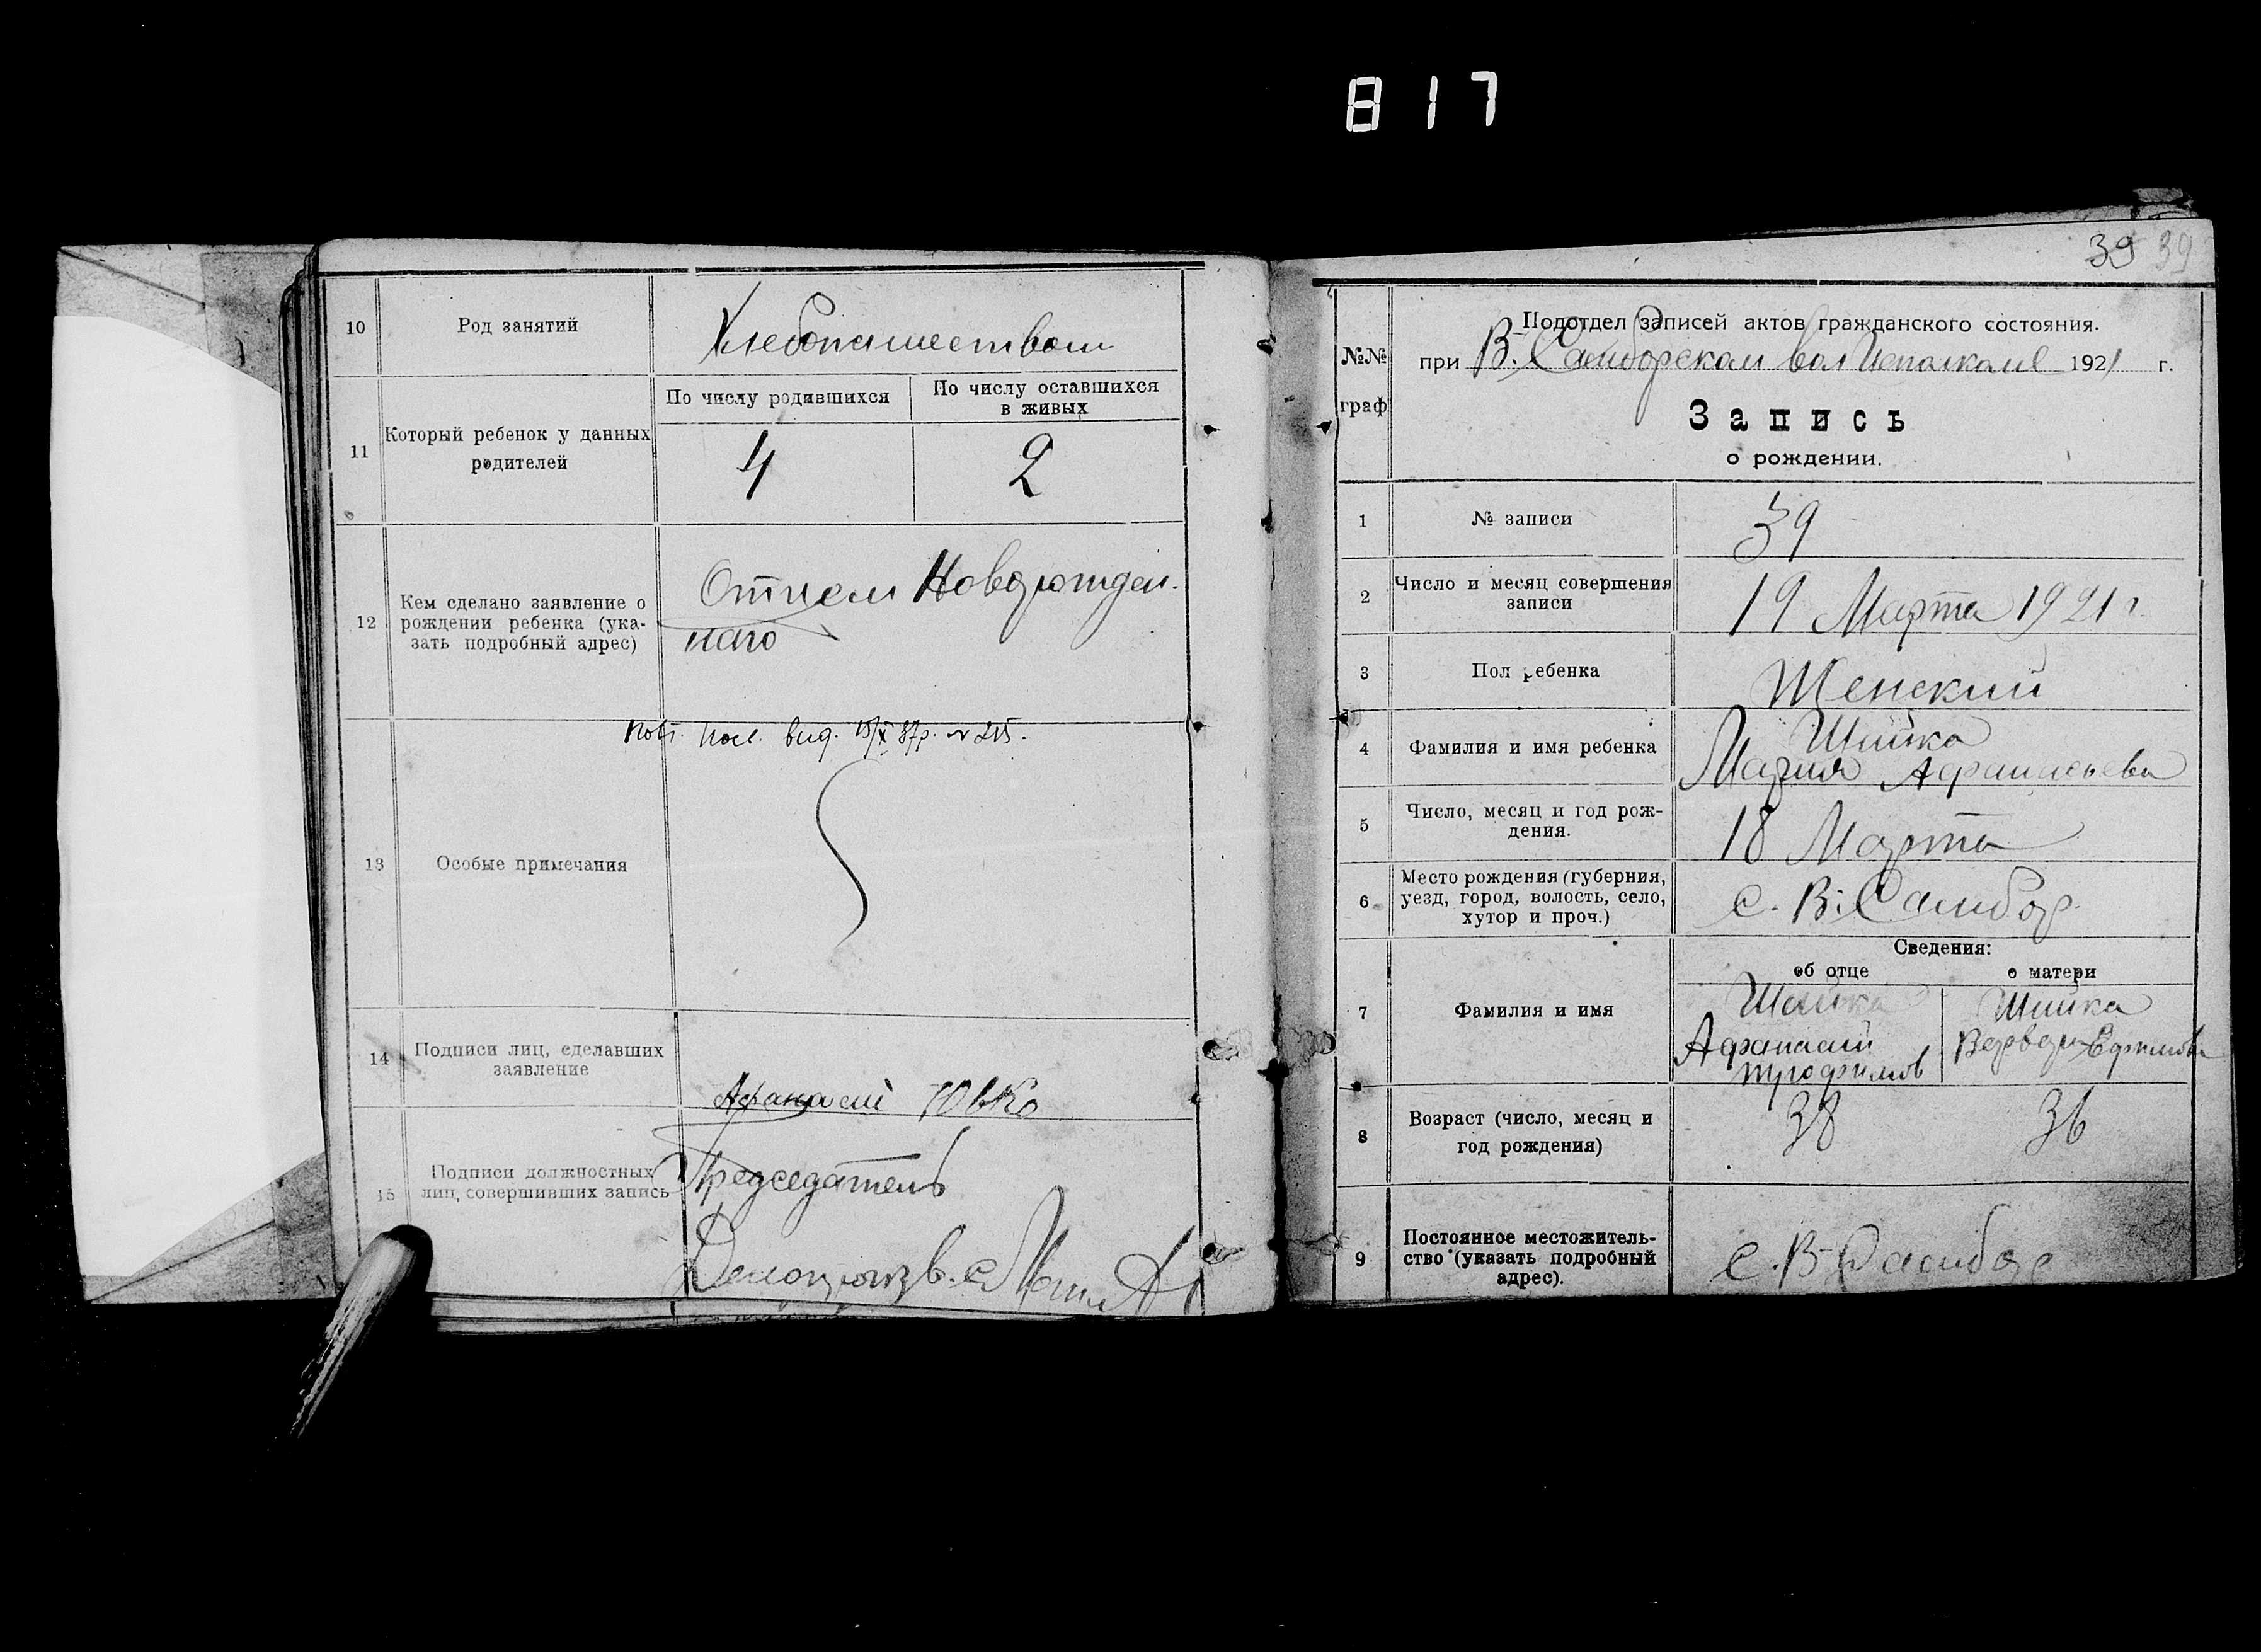 817
10
Род занятий
Хлебопашеством
11
Который ребенок у данных
родителей
По числу родившихся
По числу оставшихся
в живых
4
2
12
Кем сделано заявление о
рождении ребенка (ука-
зать подробный адрес)
Отцем Новорожден-
наго
вид. 15/X 87р. № 215.
13
Особые примечания
14
Подписи лиц, сделавших
заявление
Афанасий
15
Подписи должностных
лиц, совершивших запись
Председатель
Делопроизв.
39 39
№№
граф
Подотдел записей актов гражданского состояния.
при В.-Самборском вол Исполкоме 1921 г.
Запись
о рождении.
1
№ записи
39
2
Число и месяц совершения
записи
19 Марта 1921 г.
3
Пол ребенка
Женский
4
Фамилия и имя ребенка
Шийка
Мария Афанасьева
5
Число, месяц и год рож-
дения.
18 Марта
6
Место рождения (губерния,
уезд, город, волость, село,
хутор и проч.)
с. В. Самбор
Сведения:
об отце
о матери
7
Фамилия и имя
Шийка
Афанасий
Трофимов
Шийка
Варвара Ефимова
8
Возраст (число, месяц и
год рождения)
38
36
9
Постоянное местожитель-
ство (указать подробный
адрес).
с. В-Самбор